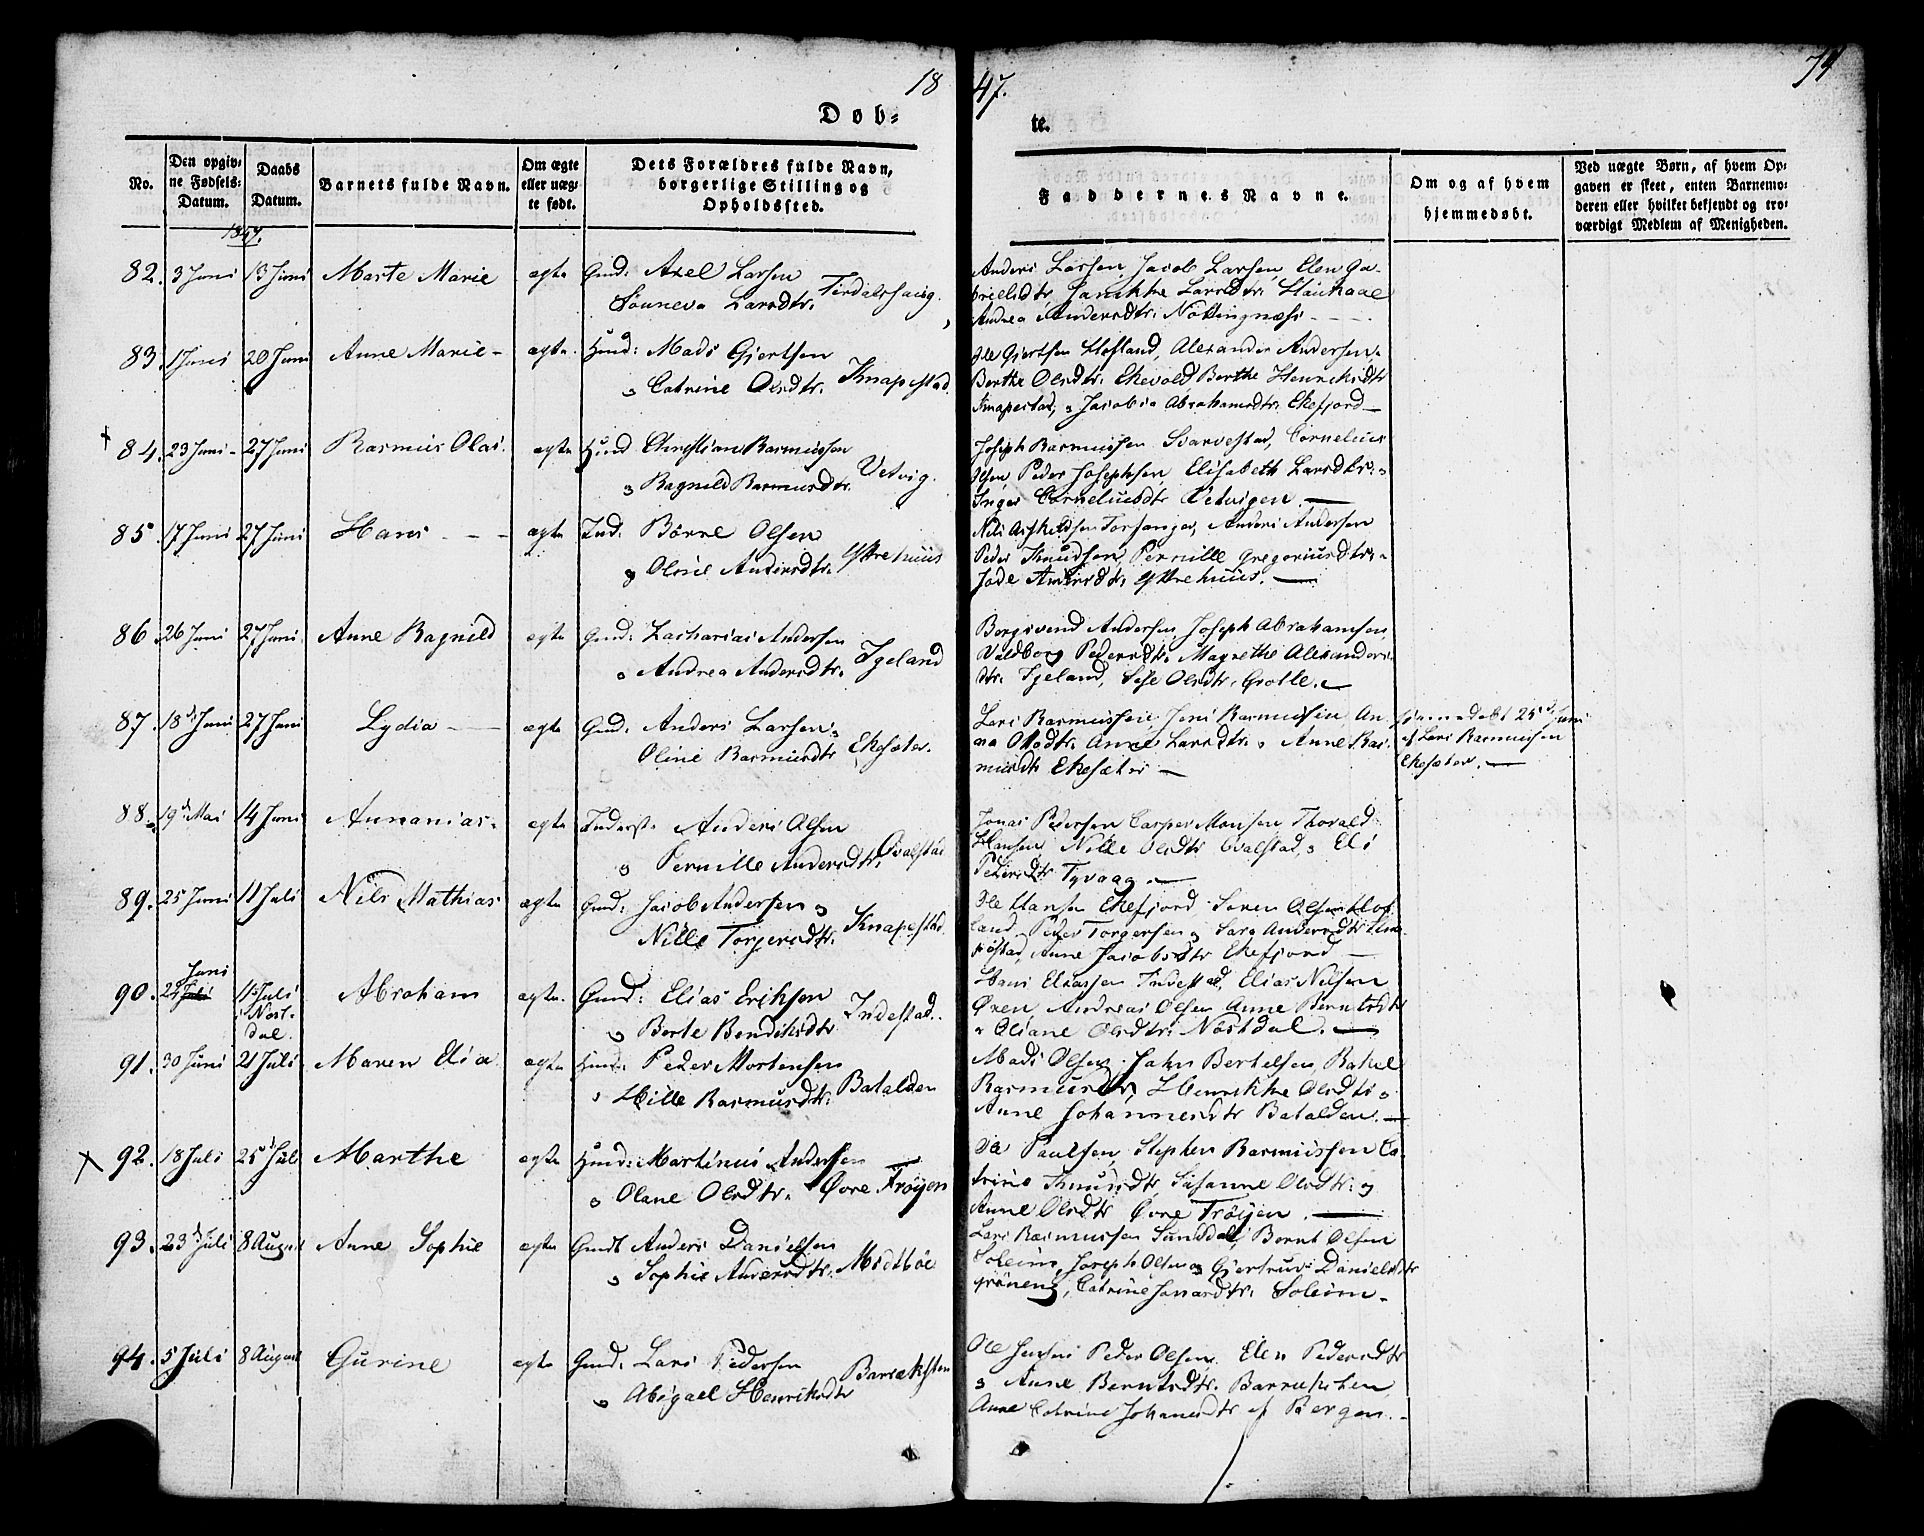 18 47. 74
Døb- te.
No.
Den opgiv-
ne Fødsels-
Datum.
Daabs
Datum.
Barnets fulde Navn.
Om ægte
eller uæg-
te født.
Dets Forældres fulde Navn,
borgerlige Stilling og
Opholdssted.
Faddernes Navne.
Om og af hvem
hjemmedøbt.
Ved uægte Børn, af hvem Op-
gaven er skeet, enten Barnemo-
deren eller hvilket bekjendt og tro-
værdigt Medlem af Menigheden.
1847.
82. 3 Juni 13 Juni Marte Marie ægte Gmd: Axel Larsen
Sønneva Larsdtr.
Anders Larsen, Jacob Larsen, Elen Ga-
brielsdtr, Jannikke Larsdtr.
Andrea Andersdtr.
83. 1 Juni 20 Juni Anne Marie - ægte Huusd: Mads Gjertsen
Catrine Olsdtr. Knapestad
Ole Gjertsen Hofland, Alexander Andersen,
Berthe Olsdtr. Ekevold, Berthe Henriksdtr
Knapestad, Jacobia Abrahamsdtr. Ekefjord
84. 23 Juni - 27 Juni Rasmus Olai ægte Huusd Christian Rasmussen
Ragnild Rasmusdtr. Vetvig.
Joseph Rasmussen Svarvestad, Cornelius
Olsen, Peder Josephsen, Elisabeth Larsdtr.
Inger Corneliusdtr Vetvigen.
85. 17 Juni 27 Juni Hans ægte Ind: Børre Olsen
Oline Andersdtr. Yttrehuus
Nils Torsanger, Anders Andersen
Peder Knudsen, Pernille Gregoriusdtr.
Andersdtr. Yttrehuus.
86. 26 Juni 27 Juni Anne Ragnild ægte Gmd: Zacharias Andersen
Andrea Andersdtr. Igeland
Borgsvend Andersen, Joseph Abrahamsen,
Valdborg Pedersdtr. Magrethe Alexanders-
dtr. Igeland, Olsdtr. Grotle.
87. 18 Juni 27 Juni Lydia ægte Gmd: Anders Larsen
Oline Rasmusdtr Ekesæter.
Lars Rasmussen, Jens Rasmussen An-
na Olsdtr. Anne Larsdtr. Anne Ras-
musdtr Ekesæter
hjemmedøbt 25 Juni
af Lars Rasmussen
Ekesæter.
88. 19 Mai 14 Juni Annanias. ægte Inderst: Anders Olsen
Pernille Andersdtr. Qvalstad
Jonas Pedersen Casper Monsen Thorald
Hansen, Nille Olsdtr Qvalstad, Eli
Pedersdtr Tyvaag.
89. 25 Juni 11 Juli Nils Mathias ægte Gmd: Jacob Andersen
Nille Torgersdtr. Knapestad.
Ole Hansen Ekefjord Søren Olsen Hof-
land, Peder Torgersen, Sara Andersdtr Kna-
pestad, Anne Jacobsdtr Ekefjord
90. Juni
11 Juli
i Nost-
dal. Abraham ægte. Gmd: Elias Eriksen
Berte Bendiksdtr Indestad.
Hans Eliassen Indestad, Elias Nilsen
Øren, Andreas Olsen Anne Berntsdtr
Oliane Olsdtr. Nostdal.
91. 30 Juni 21 Juli Maren Elia ægte Huusd: Peder Mortensen
Hille Rasmusdtr. Batalden
Mads Olsen, John Bertelsen, Rakel
Rasmusdtr, Henrikke Olsdtr.
Anne Johannesdtr Batalden.
92. 18 Juli 25 Juli Marthe ægte Huusd: Martinus Andersen
Olane Olsdtr. Øvre Frøyen
Ole Paulsen, Stephen Rasmussen Ca-
trine Knudsdtr, Susanne Olsdtr. og
Anne Olsdtr Øvre Frøyen.
93. 23 Juli 8 August Anne Sophie ægte Gmd: Anders Danielsen
Sophie Andersdtr. Midtbøe
Lars Rasmussen Sunddal, Bernt Olsen
Soleim, Joseph Olsen Gjertrud Danielsdtr
Grønenge, Catrine Jonasdtr. Soleim.
94. 5 Juli 8 August Gurine ægte Gmd: Lars Pedersen
Abigael Henriksdtr Baræksten
Ole Jensen Peder Olsen, Elen Pedersdtr
Anne Berntsdtr.
Anne Catrine Johannesdtr af Bergen.